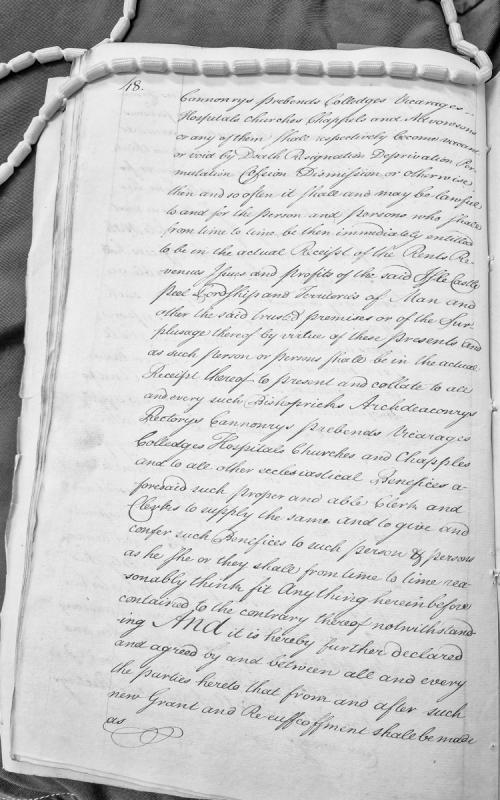 48.
Cannonrys prebends Colledges Vicarages
Hospitals Churches Chappels and Advowsons
or any of them shall respectively become vacant
or void by Death Resignation Deprivation Per
mutation Cession Dismission or otherwise
then and so often it shall and may be lawfull
to and for the person and persons who shall
from time to time be then immediately entitled
to be in the actual Receipt of the Rents Re
venues Issues and profits of the said Isle Castle
peel Lordship and Territories of Man and
other the said trusted premises or of the Sur
plusage thereof by virtue of these presents and
as such person or persons shall be in the actual
Receipt thereof to present and collate to all
and every such Bishopricks Archdeaconrys
Rectorys Cannonrys prebends Vicarages
Colledges Hospitals Churches and Chapples
and to all other ecclesiastical Benefices a-
foresaid such proper and able Clerk and
Clerks to supply the same and to give and
confer such Benefices to such person & persons
as he she or they shall from time to time rea
sonably think fit Any thing herein before
contained to the contrary thereof notwithstand
ing And it is hereby further declared
and agreed by and between all and every
the parties hereto that from and after such
new Grant and Re-enffeoffment shall be made
as